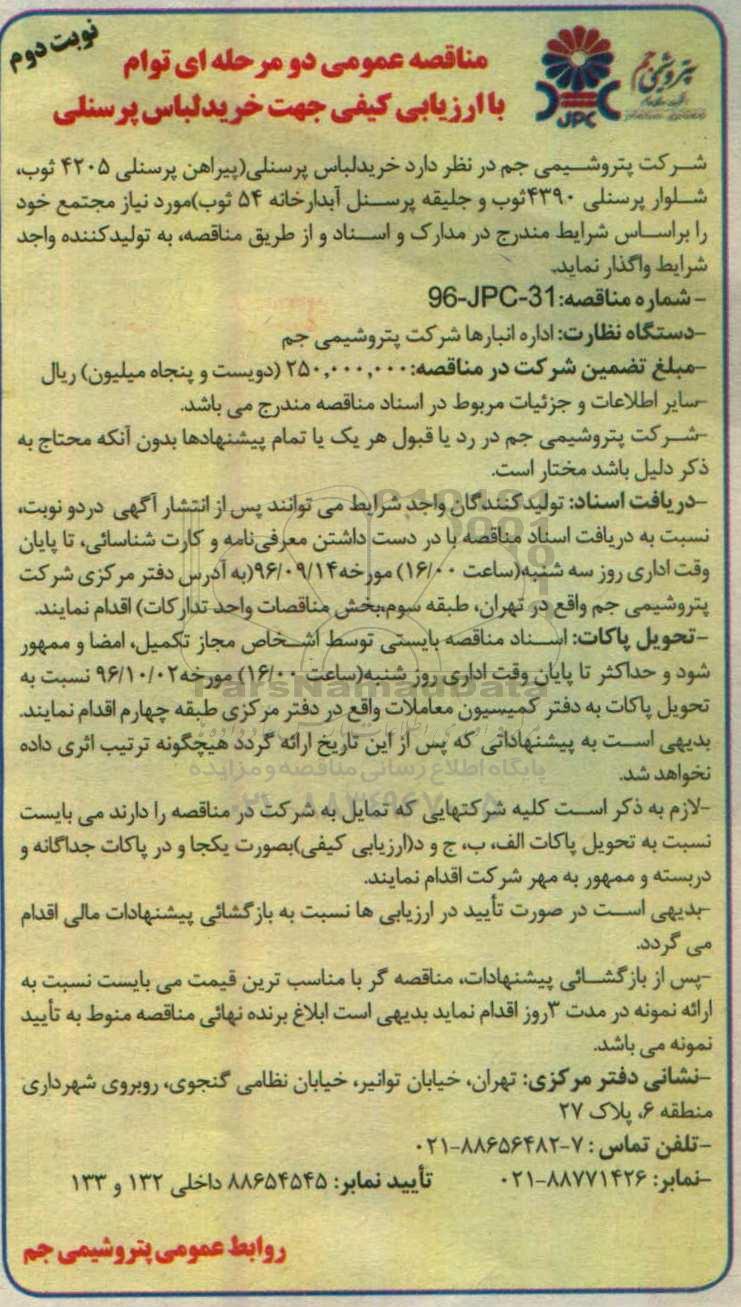 نوبت دوم
پتروشیمی جم
JPC
مناقصه عمومی دو مرحله ای توام
با ارزیابی کیفی جهت خرید لباس پرسنلی
شرکت پتروشیمی جم در نظر دارد خرید لباس پرسنلی(پیراهن پرسنلی ۴۲۰۵ ثوب،
شلوار پرسنلی ۴۳۹۰ ثوب و جلیقه پرسنل آبدارخانه ۵۴ ثوب)مورد نیاز مجتمع خود
را براساس شرایط مندرج در مدارک و اسناد و از طریق مناقصه، به تولیدکننده واجد
شرایط واگذار نماید.
- شماره مناقصه: 96-JPC-31
-دستگاه نظارت: اداره انبارها شرکت پتروشیمی جم
-مبلغ تضمین شرکت در مناقصه: ۲۵۰,۰۰۰,۰۰۰ (دویست و پنجاه میلیون) ریال
-سایر اطلاعات و جزئیات مربوط در اسناد مناقصه مندرج می باشد.
-شرکت پتروشیمی جم در رد یا قبول هر یک یا تمام پیشنهادها بدون آنکه محتاج به
ذکر دلیل باشد مختار است.
-دریافت اسناد: تولیدکنندگان واجد شرایط می توانند پس از انتشار آگهی دردو نوبت،
نسبت به دریافت اسناد مناقصه با در دست داشتن معرفی‌نامه و کارت شناسائی، تا پایان
وقت اداری روز سه شنبه(ساعت ۱۶/۰۰) مورخه۹۶/۰۹/۱۴(به آدرس دفتر مرکزی شرکت
پتروشیمی جم واقع در تهران، طبقه سوم،بخش مناقصات واحد تدارکات) اقدام نمایند.
-تحویل پاکات: اسناد مناقصه بایستی توسط اشخاص مجاز تکمیل، امضا و ممهور
شود و حداکثر تا پایان وقت اداری روز شنبه(ساعت ۱۶/۰۰) مورخه۹۶/۱۰/۰۲ نسبت به
تحویل پاکات به دفتر کمیسیون معاملات واقع در دفتر مرکزی طبقه چهارم اقدام نمایند.
بدیهی است به پیشنهاداتی که پس از این تاریخ ارائه گردد هیچگونه ترتیب اثری داده
نخواهد شد.
ParsNamadData
پایگاه اطلاع رسانی مناقصه و مزایده
-لازم به ذکر است کلیه شرکتهایی که تمایل به شرکت در مناقصه را دارند می بایست
نسبت به تحویل پاکات الف، ب، ج و د(ارزیابی کیفی)بصورت یکجا و در پاکات جداگانه و
دربسته و ممهور به مهر شرکت اقدام نمایند.
-بدیهی است در صورت تأیید در ارزیابی ها نسبت به بازگشائی پیشنهادات مالی اقدام
می گردد.
-پس از بازگشائی پیشنهادات، مناقصه گر با مناسب ترین قیمت می بایست نسبت به
ارائه نمونه در مدت ۳روز اقدام نماید بدیهی است ابلاغ برنده نهائی مناقصه منوط به تأیید
نمونه می باشد.
-نشانی دفتر مرکزی: تهران، خیابان توانیر، خیابان نظامی گنجوی، روبروی شهرداری
منطقه ۶، پلاک ۲۷
-تلفن تماس : ۷-۸۸۶۵۶۴۸۲-۰۲۱
-نمابر: ۸۸۷۷۱۴۲۶-۰۲۱ تأیید نمابر: ۸۸۶۵۴۵۴۵ داخلی ۱۳۲ و ۱۳۳
روابط عمومی پتروشیمی جم